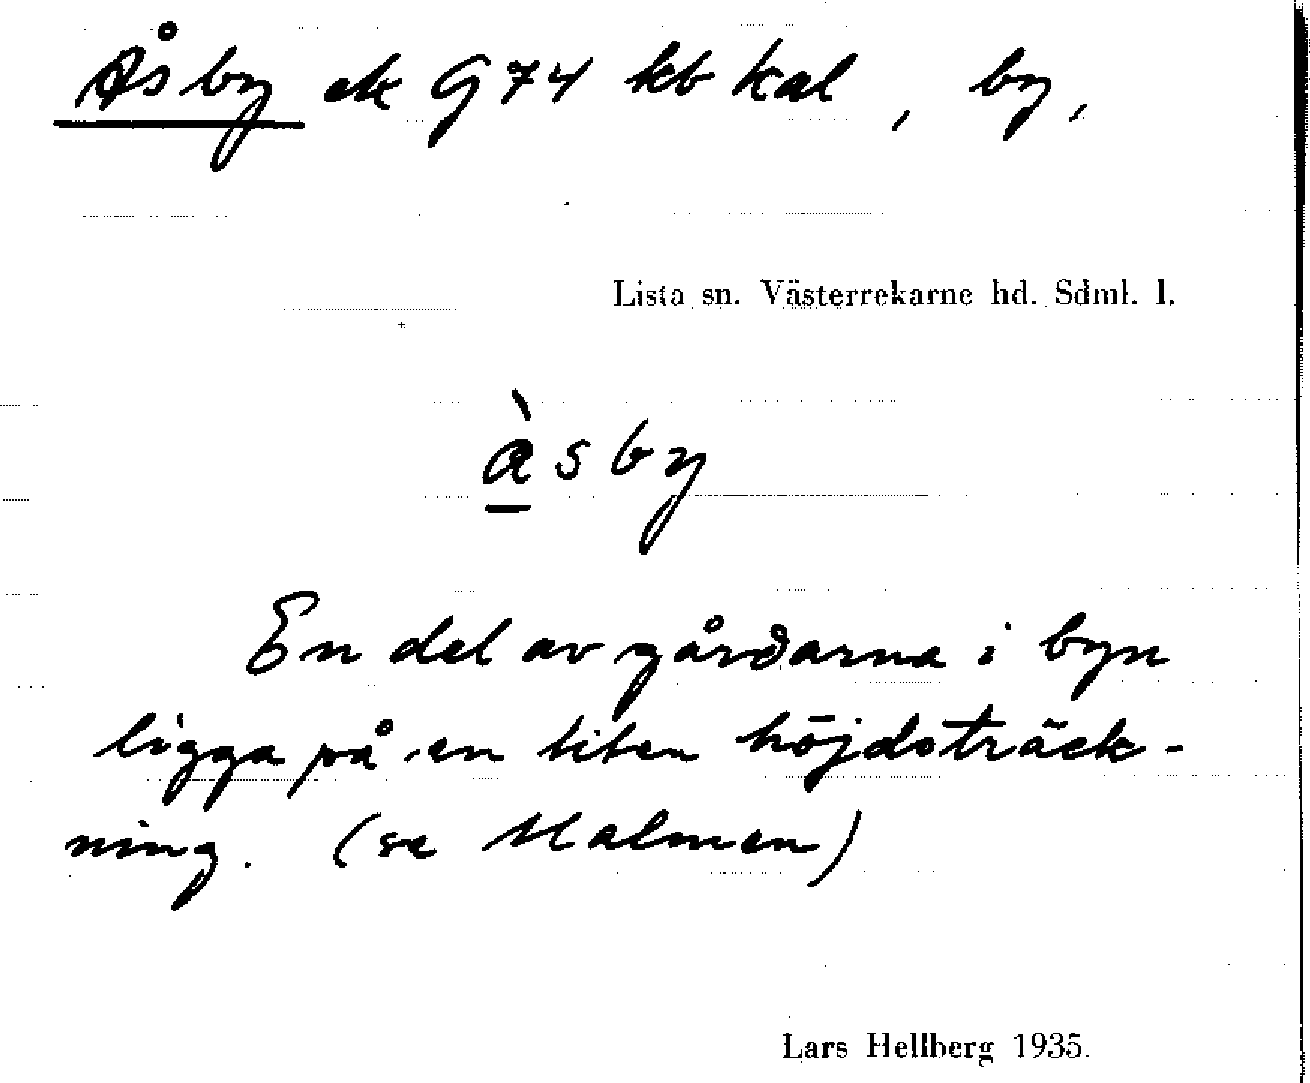 Åsby ek G74 kb kal, by,
Lista sn. Västerrekarne hd. Sdml. l.
àsby
En del av gårdarna i byn
ligga på en liten höjdsträck-
ning. (se Malmen)
Lars Hellberg 1935.